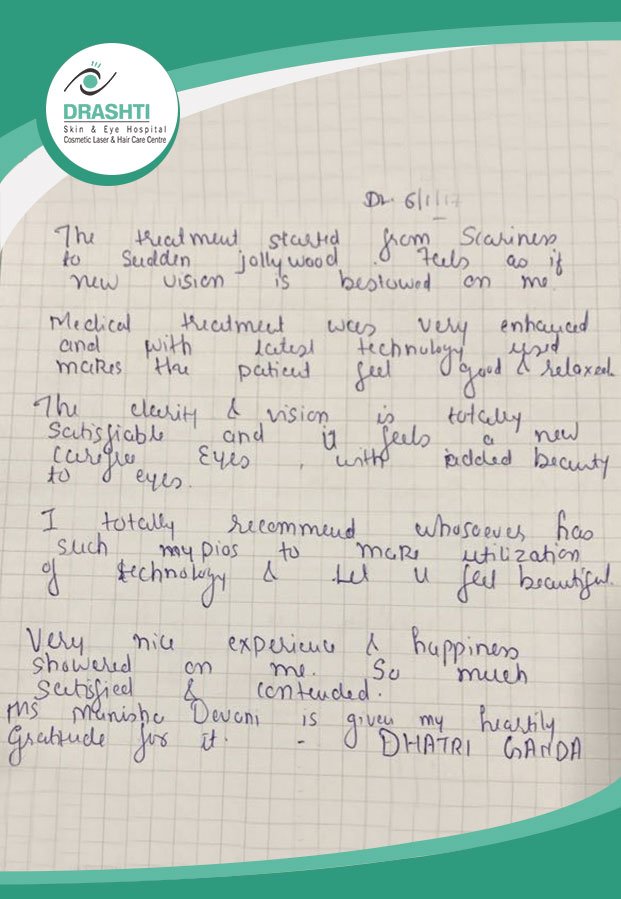 DRASHTI
Skin & Eye Hospital
Cosmetic Laser & Hair Care Centre
Dt. 6/1/17
The treatment started from Scariness
to Sudden jollywood. Feels as if
new vision is bestowed on me.
Medical treatment was very enhanced
and with latest technology used
makes the patient feel good & relaxed.
The clearity & vision is totally
Satisfiable and it feels a new
carefree Eyes, with added beauty
to eyes.
I totally recommend whosoever has
such mypios to make utilization
of technology & Let u feel beautiful.
Very nice experience & happiness
showered on me. So much
satisfied & contended.
Ms Manisha Devani is given my heartily
Gratitude for it. - DHATRI GANDA